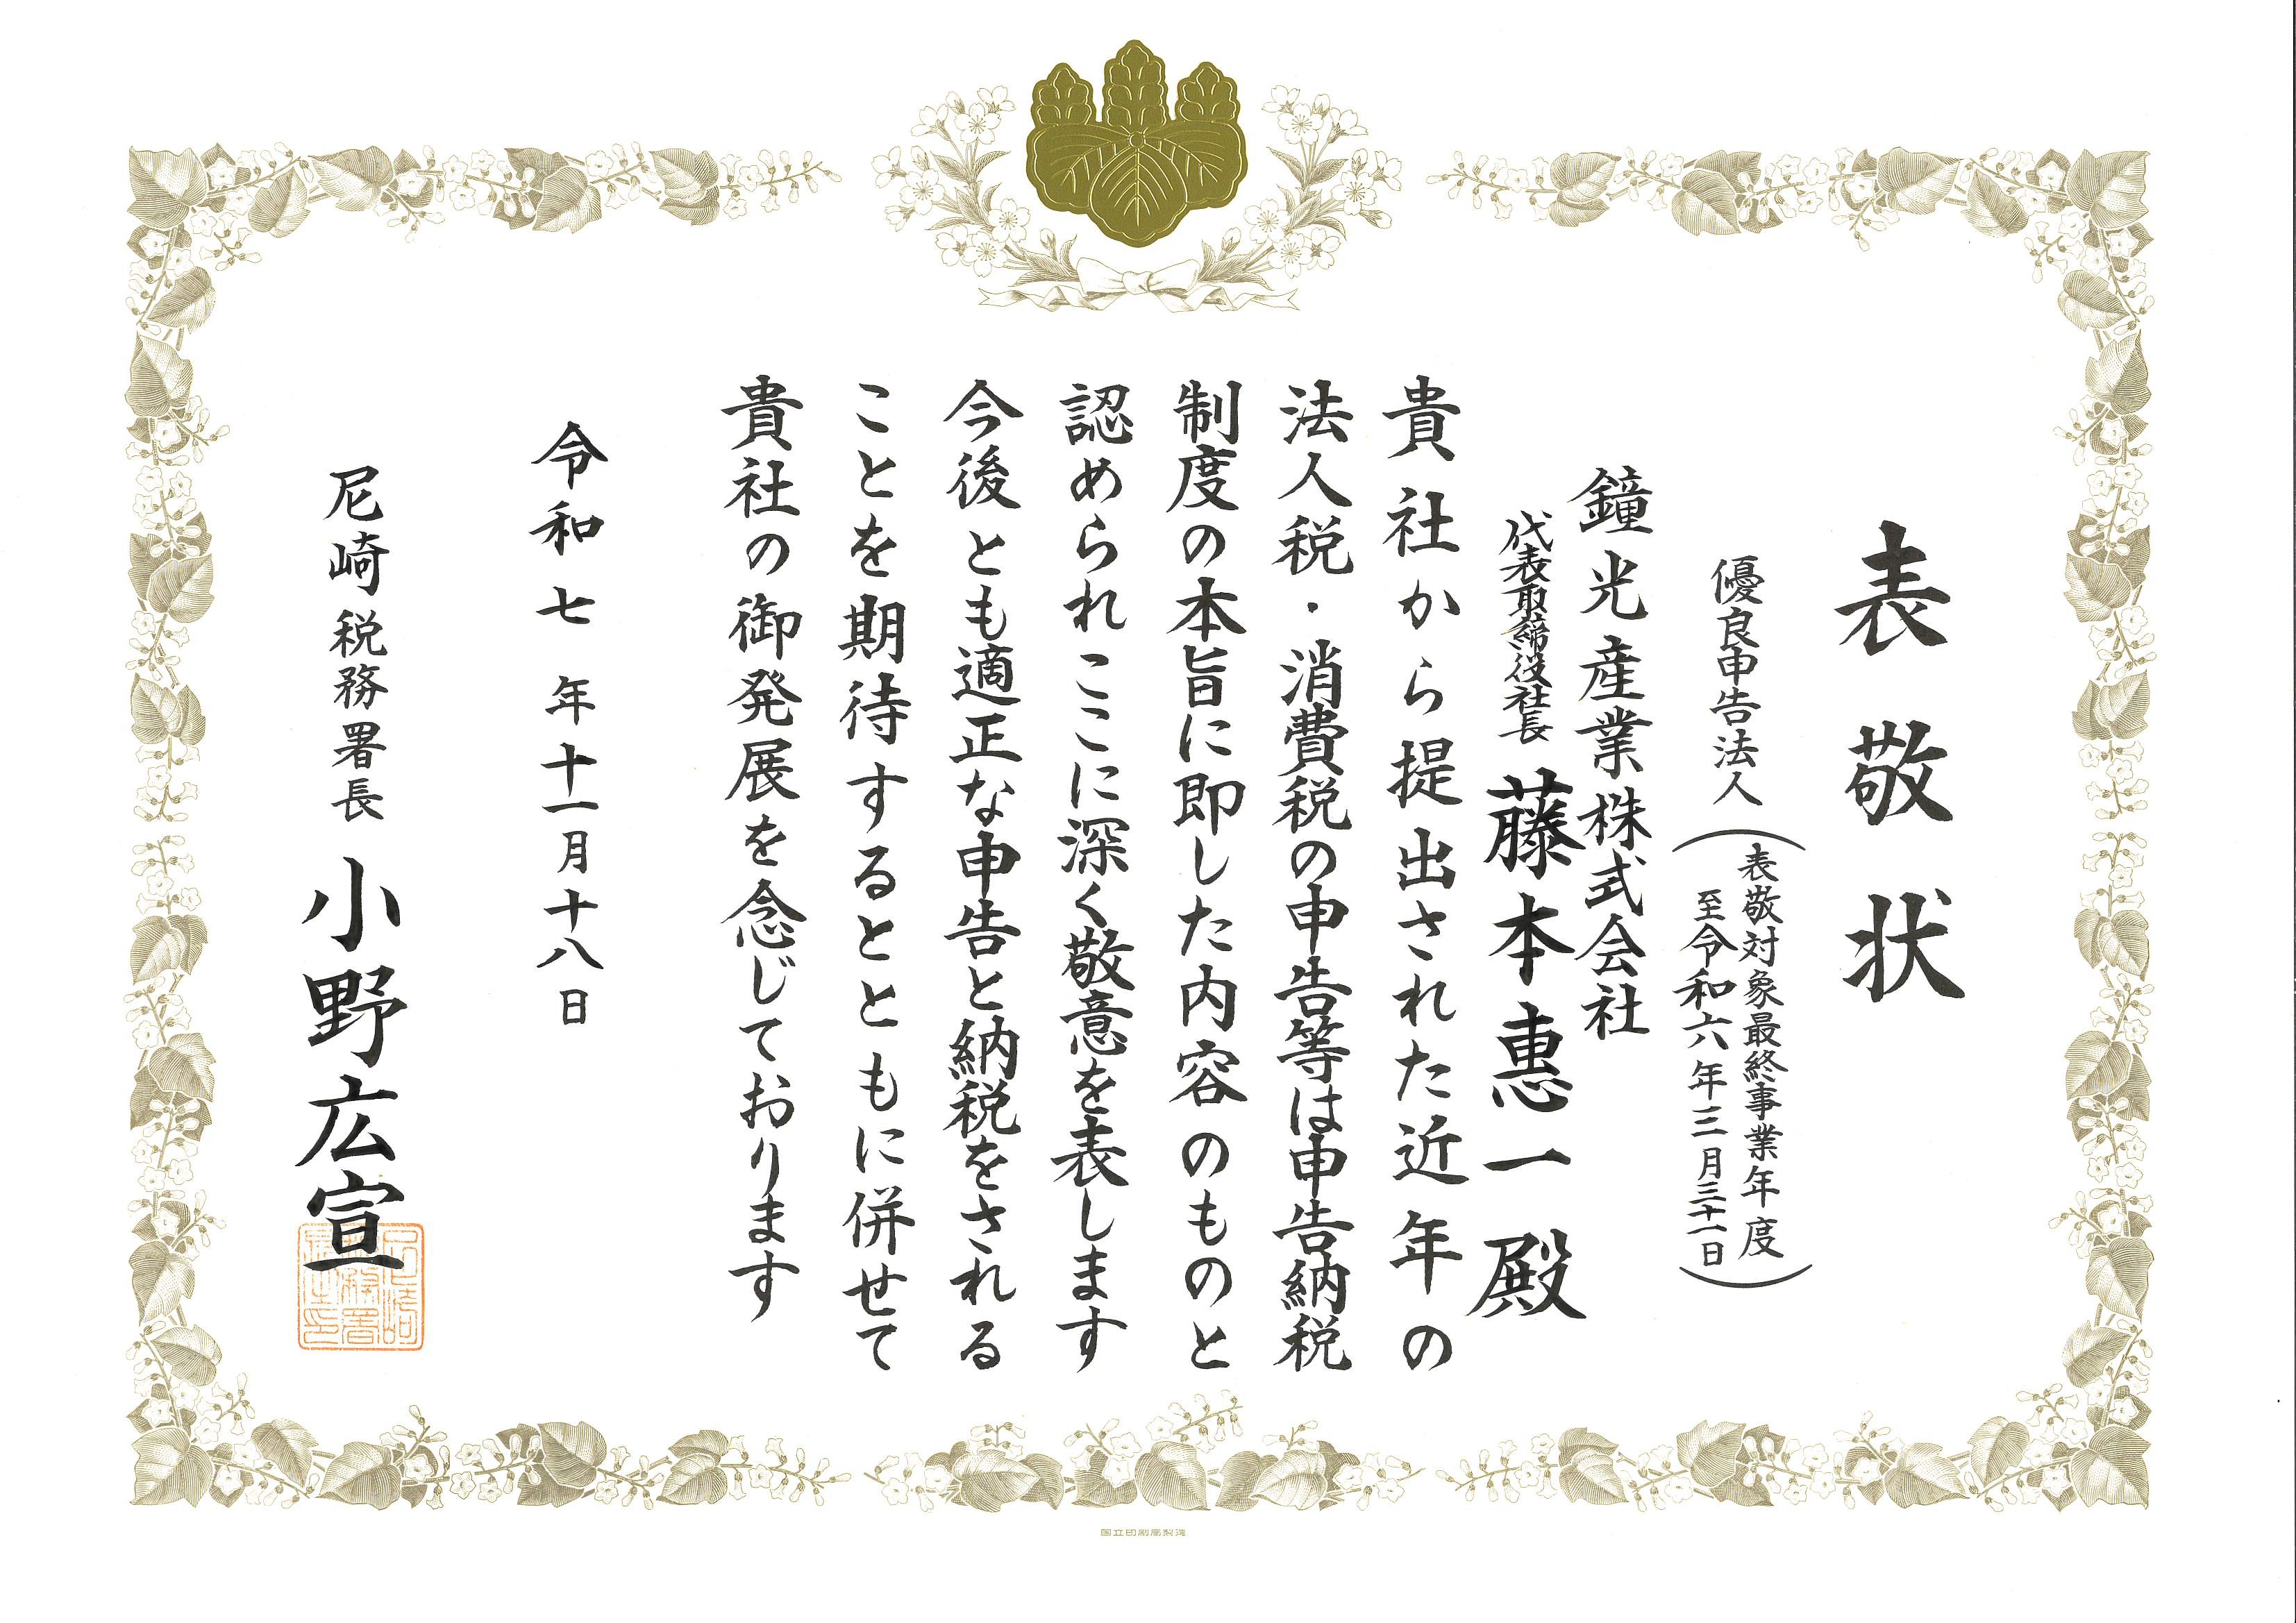 表敬状
優良申告法人
(表敬対象最終事業年度
至令和六年三月三十一日)
鐘光産業株式会社
代表取締役社長 藤本惠一殿
貴社から提出された近年の
法人税・消費税の申告等は申告納税
制度の本旨に即した内容のものと
認められここに深く敬意を表します
今後とも適正な申告と納税をされる
ことを期待するとともに併せて
貴社の御発展を念じております
令和七年十一月十八日
尼崎税務署長 小野広宣
国立印刷局製造